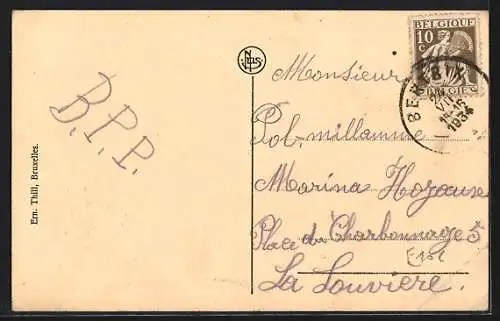 Ern. Thill, Bruxelles.
B.P.P.
NELS
BELGIQUE
10 c
BELGIË
VII
15-16
1934
Monsieur
Pol. millamme
Marina Hozause
Place du Charbonnage 5
La Louvière.